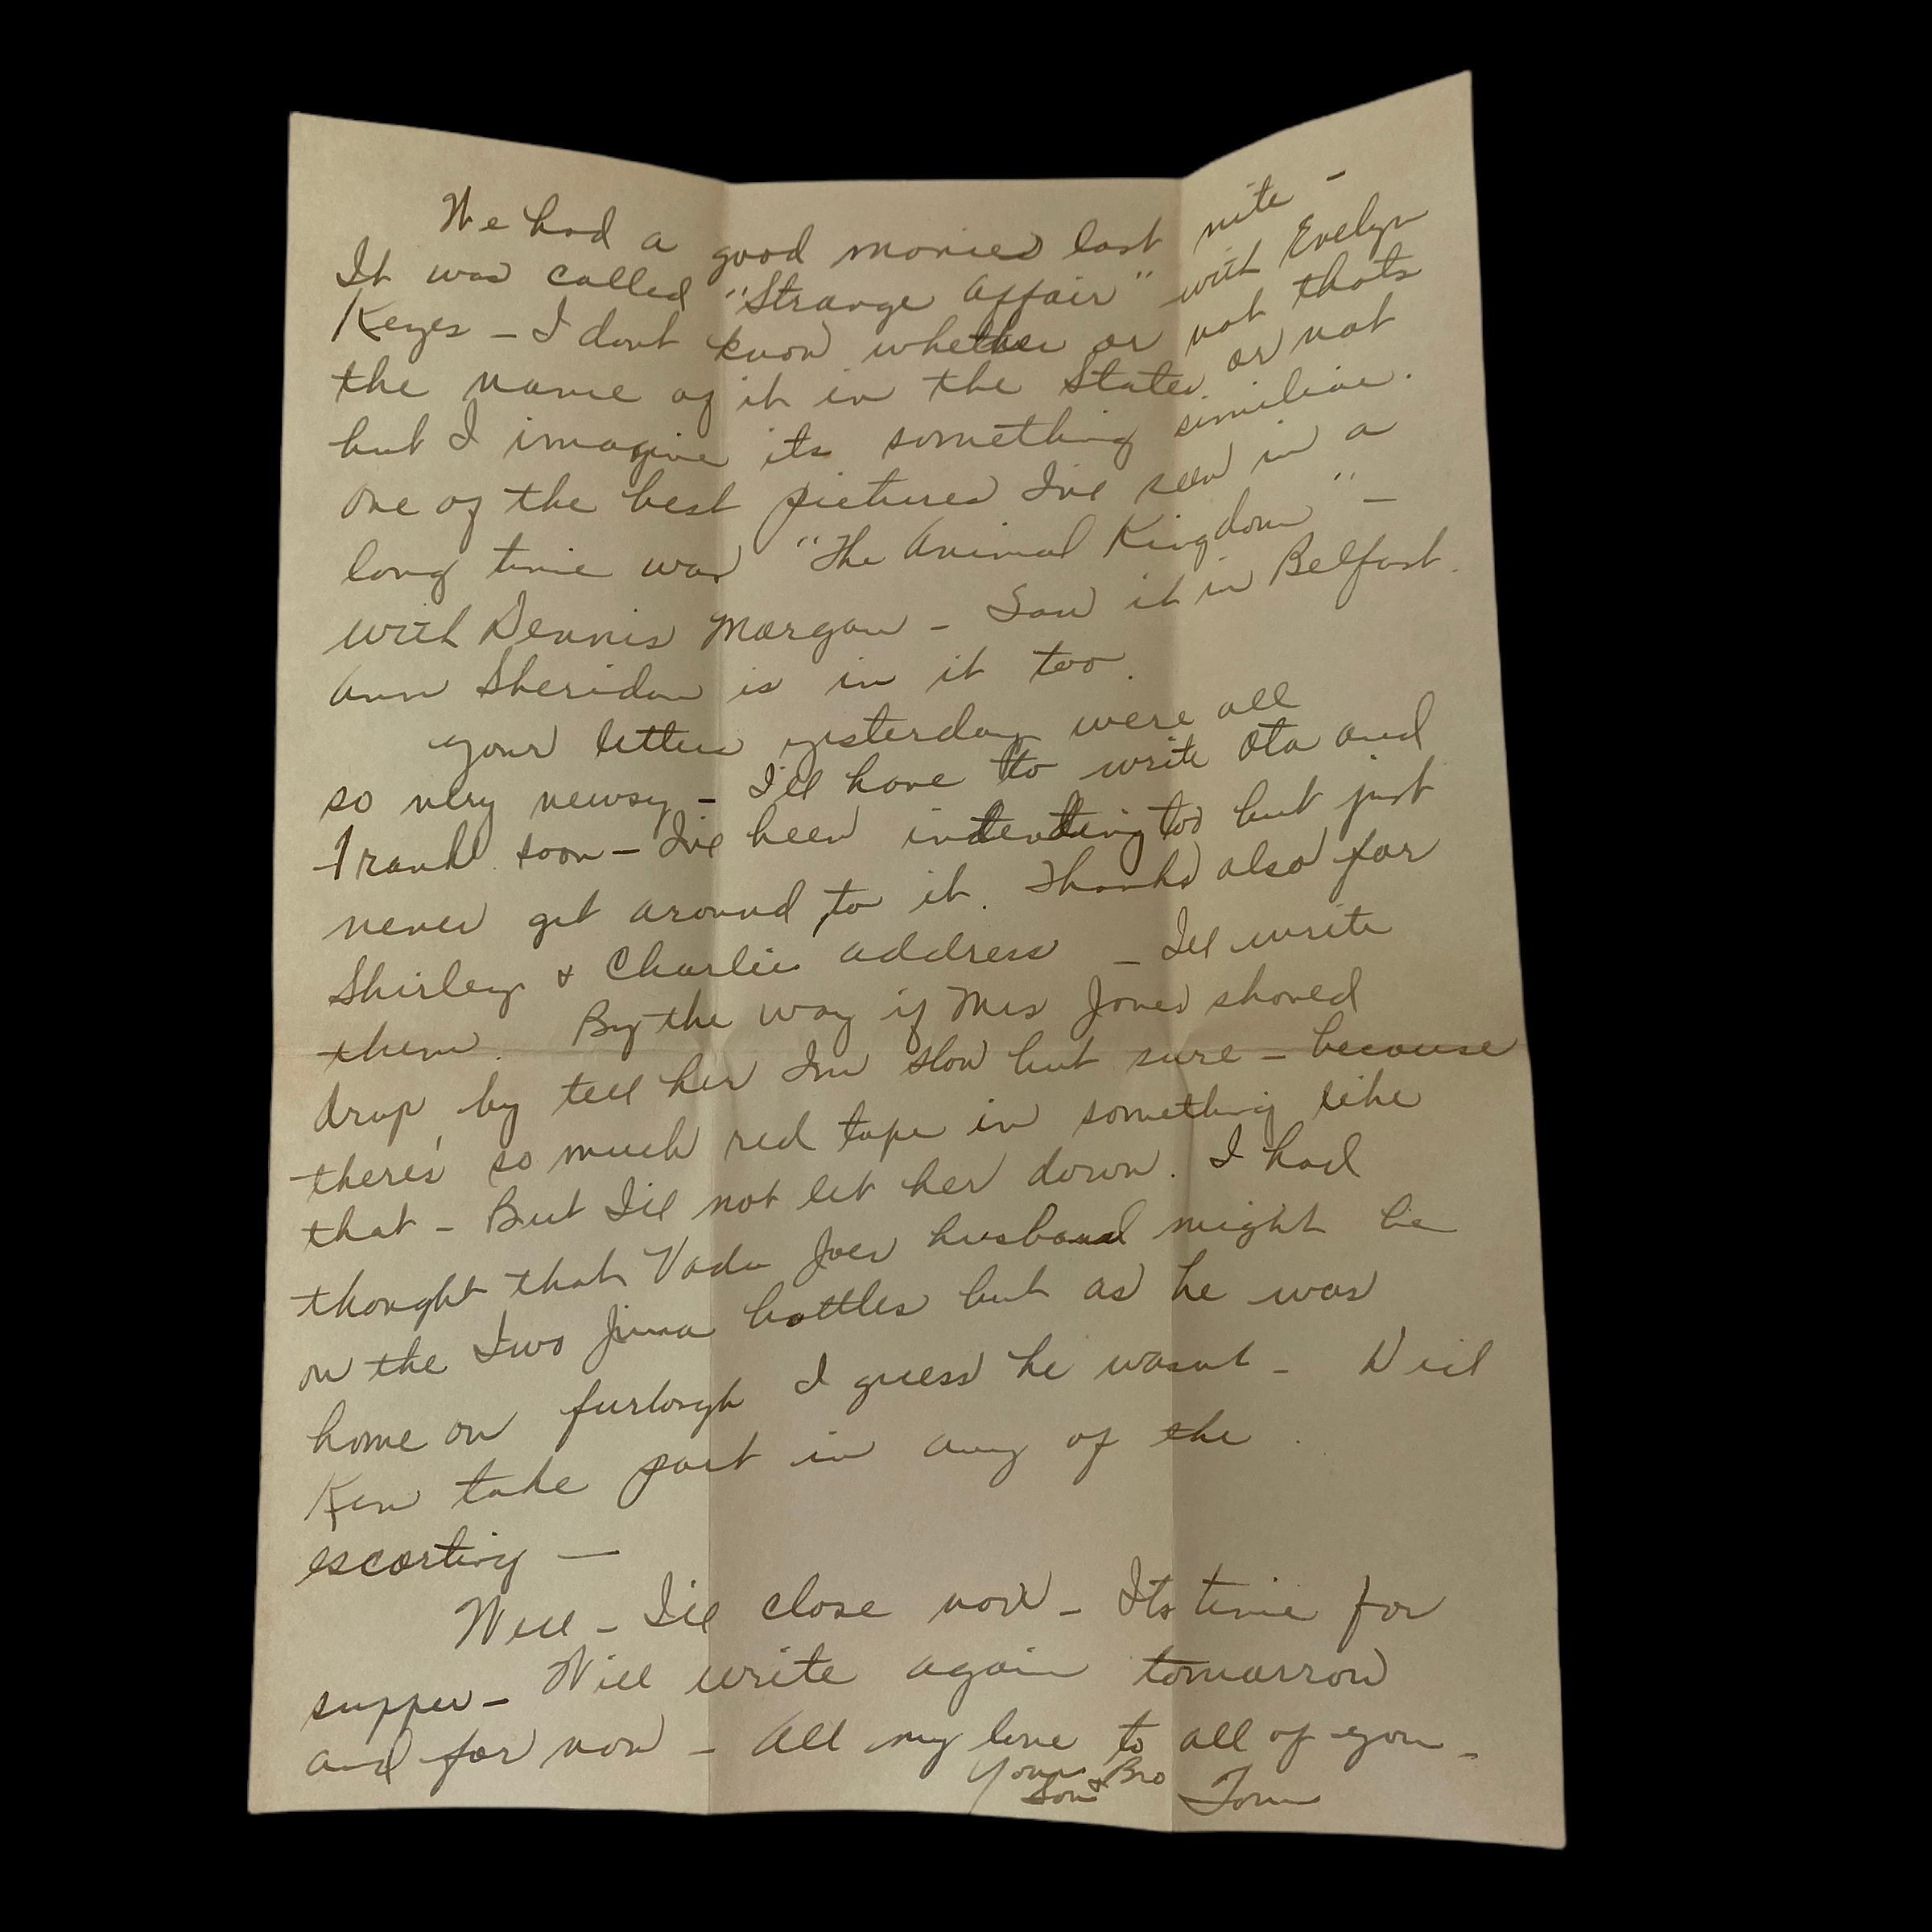 We had a good movies last nite -
It was called "Strange Affair" with Evelyn
Keyes - I dont know whether or not thats
the name of it in the States or not
but I imagine its something similiar.
One of the best pictures I've seen in a
long time was "The Animal Kingdom" -
with Dennis Morgan - Saw it in Belfast.
Ann Sheridan is in it too.
Your letters yesterday were all
so very newsy - I'll have to write Ota and
Frank soon - I've been intending to but just
never get around to it. Thanks also for
Shirley & Charlie address - I'll write
them. By the way if Mrs Jones shoved
drop by tell her Im slow but sure - because
there's so much red tape in something like
that - But I'll not let her down. I had
thought that Vada Joes husband might be
on the Iwo Jima battles but as he was
home on furlough I guess he wasnt - Did
Ken take part in any of the
escorting -
Well - I'll close now - Its time for
supper - Will write again tomorrow
and for now - All my love to all of you -
Your Son & Bro Tom